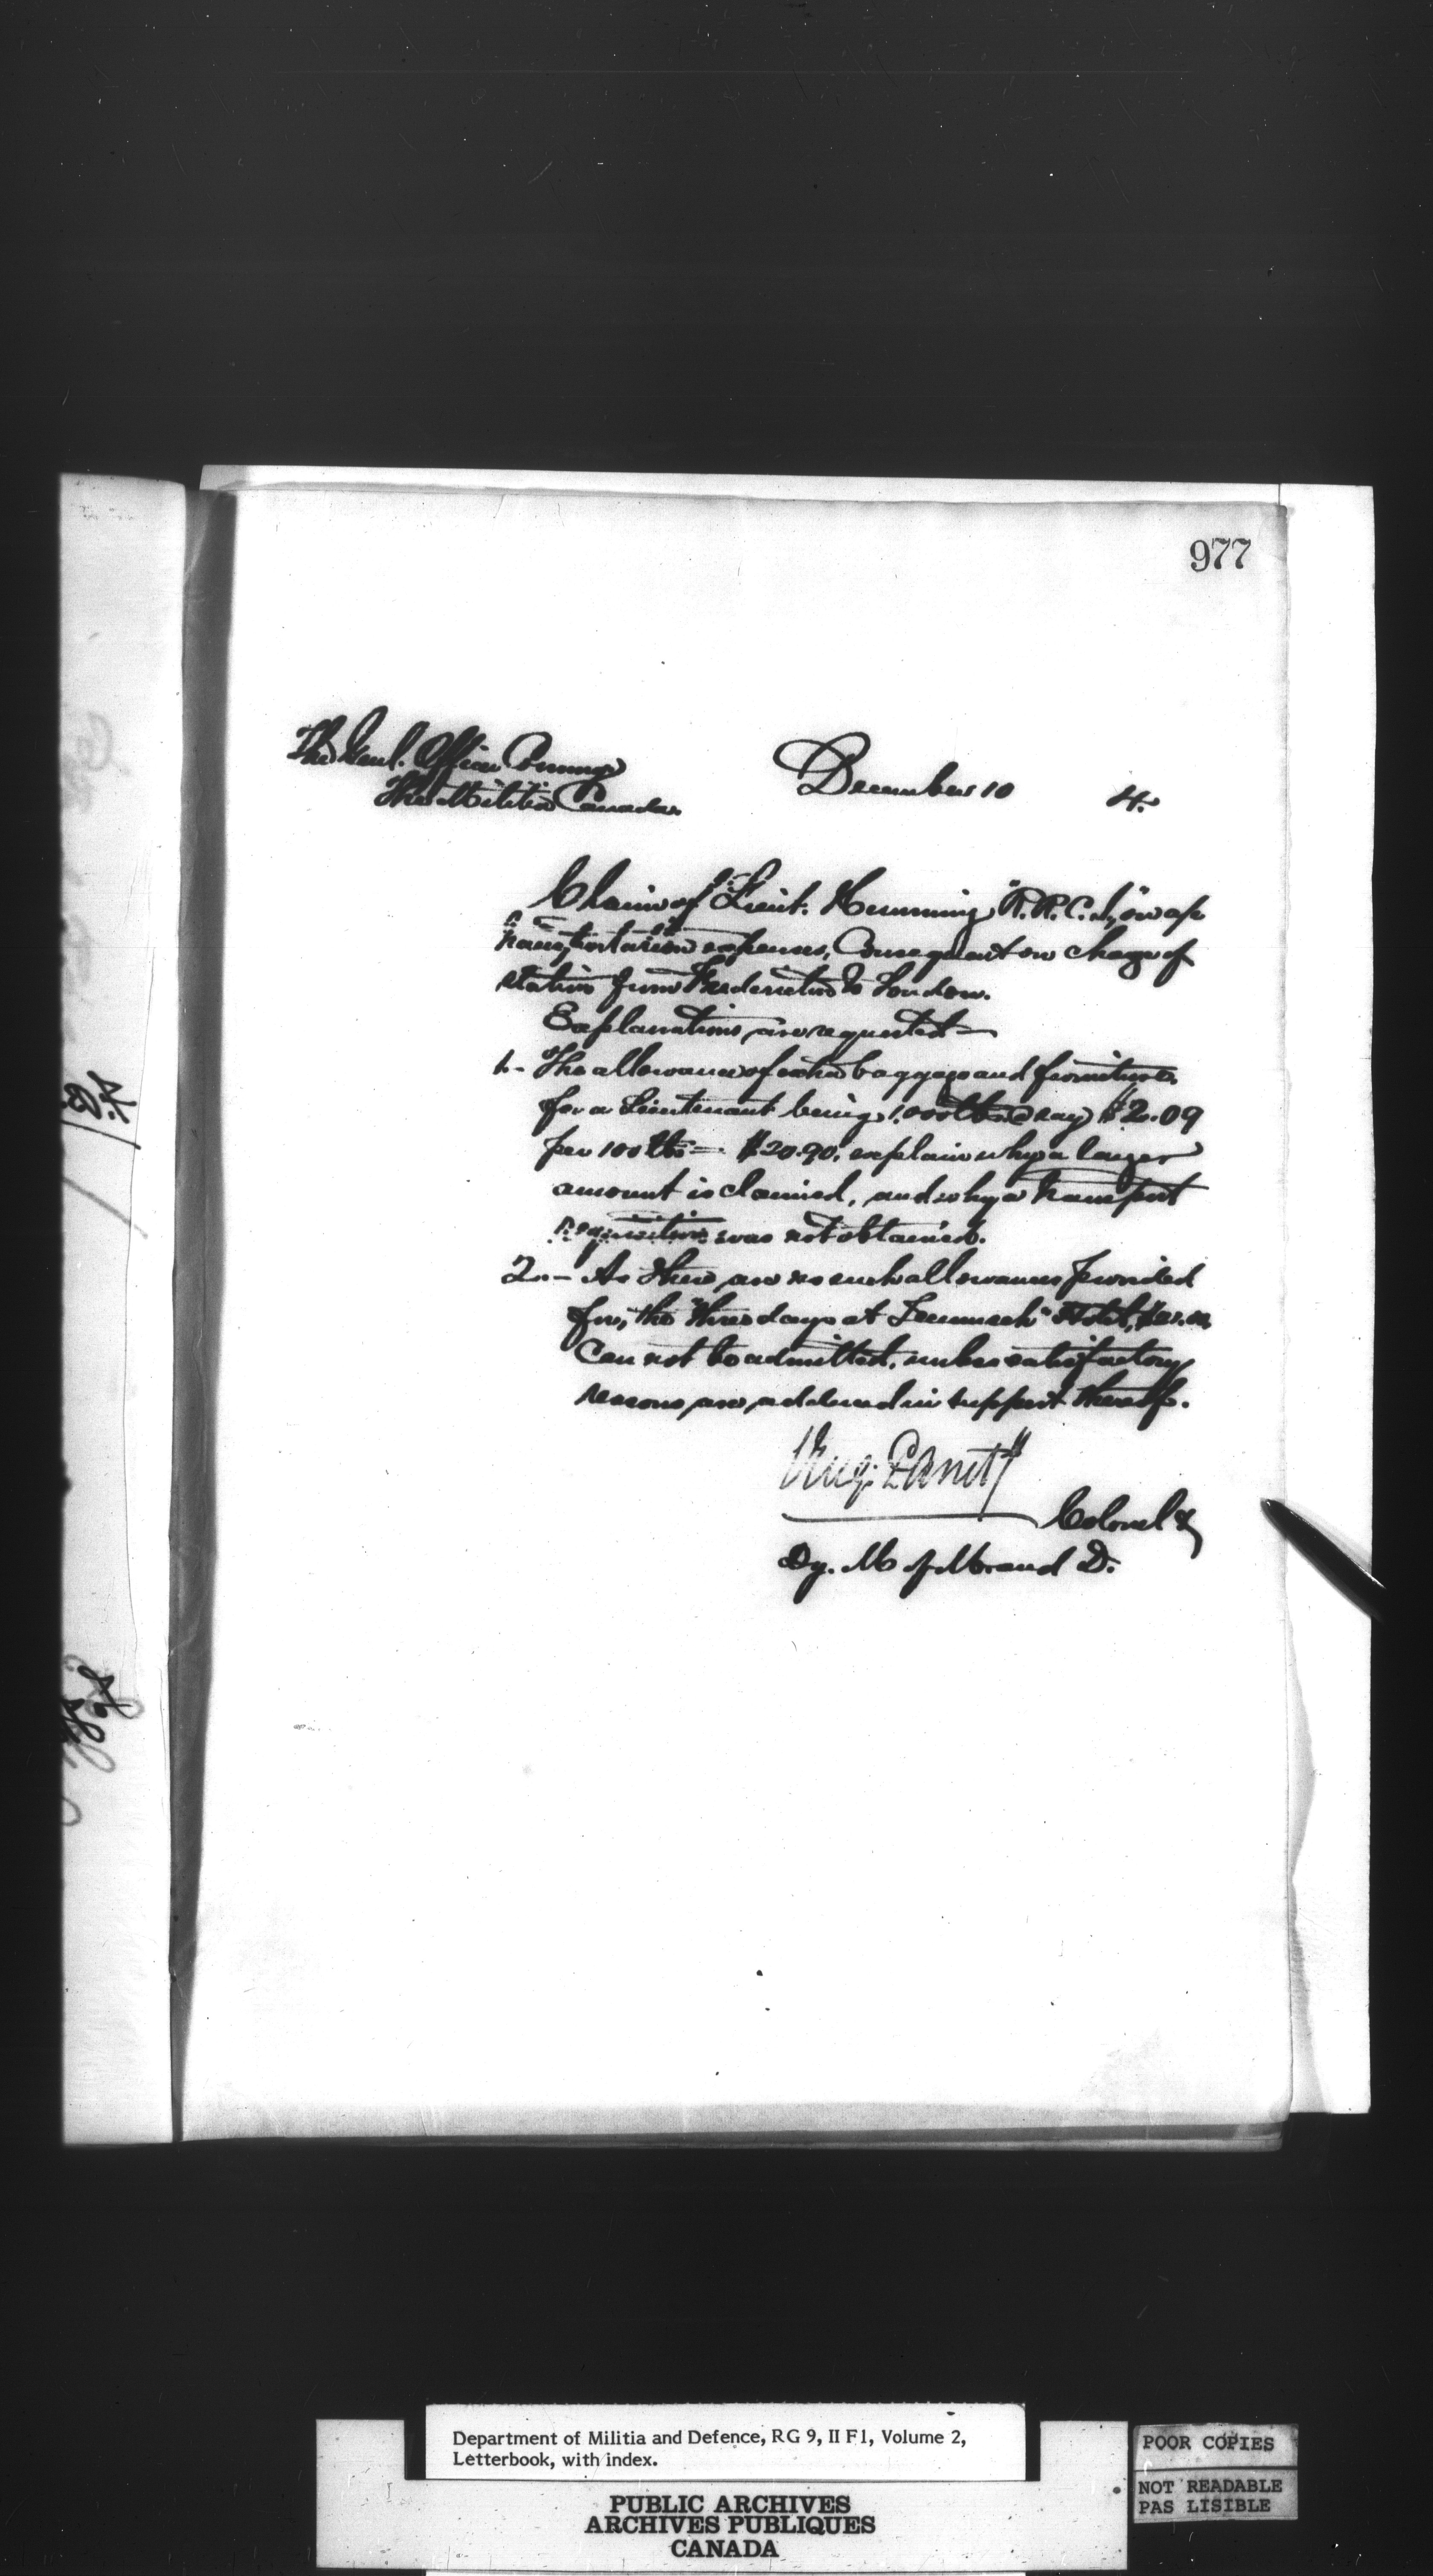 977
The Genl. Officer Commg
The Militia Canada.
December 10 4.
Claim of Lieut. Hemming "R.R.C.I.,"
transportation expenses, Consequent on change of
station from Fredericton to London.
Explanations are requested—
1.- The allowance of extra baggage and furniture
for a Lieutenant being 1,000 lbs @ say $2.09
per 100 lbs = $20.90, explain why a larger
amount is claimed, and why a transport
requisition was not obtained.
2.- As there are no such allowances provided
for, the "three days at Tecumseh" Hotel,
Can not be admitted, unless satisfactory
reasons are adduced in support thereof.
Eug. Panet
Colonel &
Dy. M of M. and D.
Department of Militia and Defence, RG 9, II F1, Volume 2,
Letterbook, with index.
PUBLIC ARCHIVES
ARCHIVES PUBLIQUES
CANADA
POOR COPIES
NOT READABLE
PAS LISIBLE